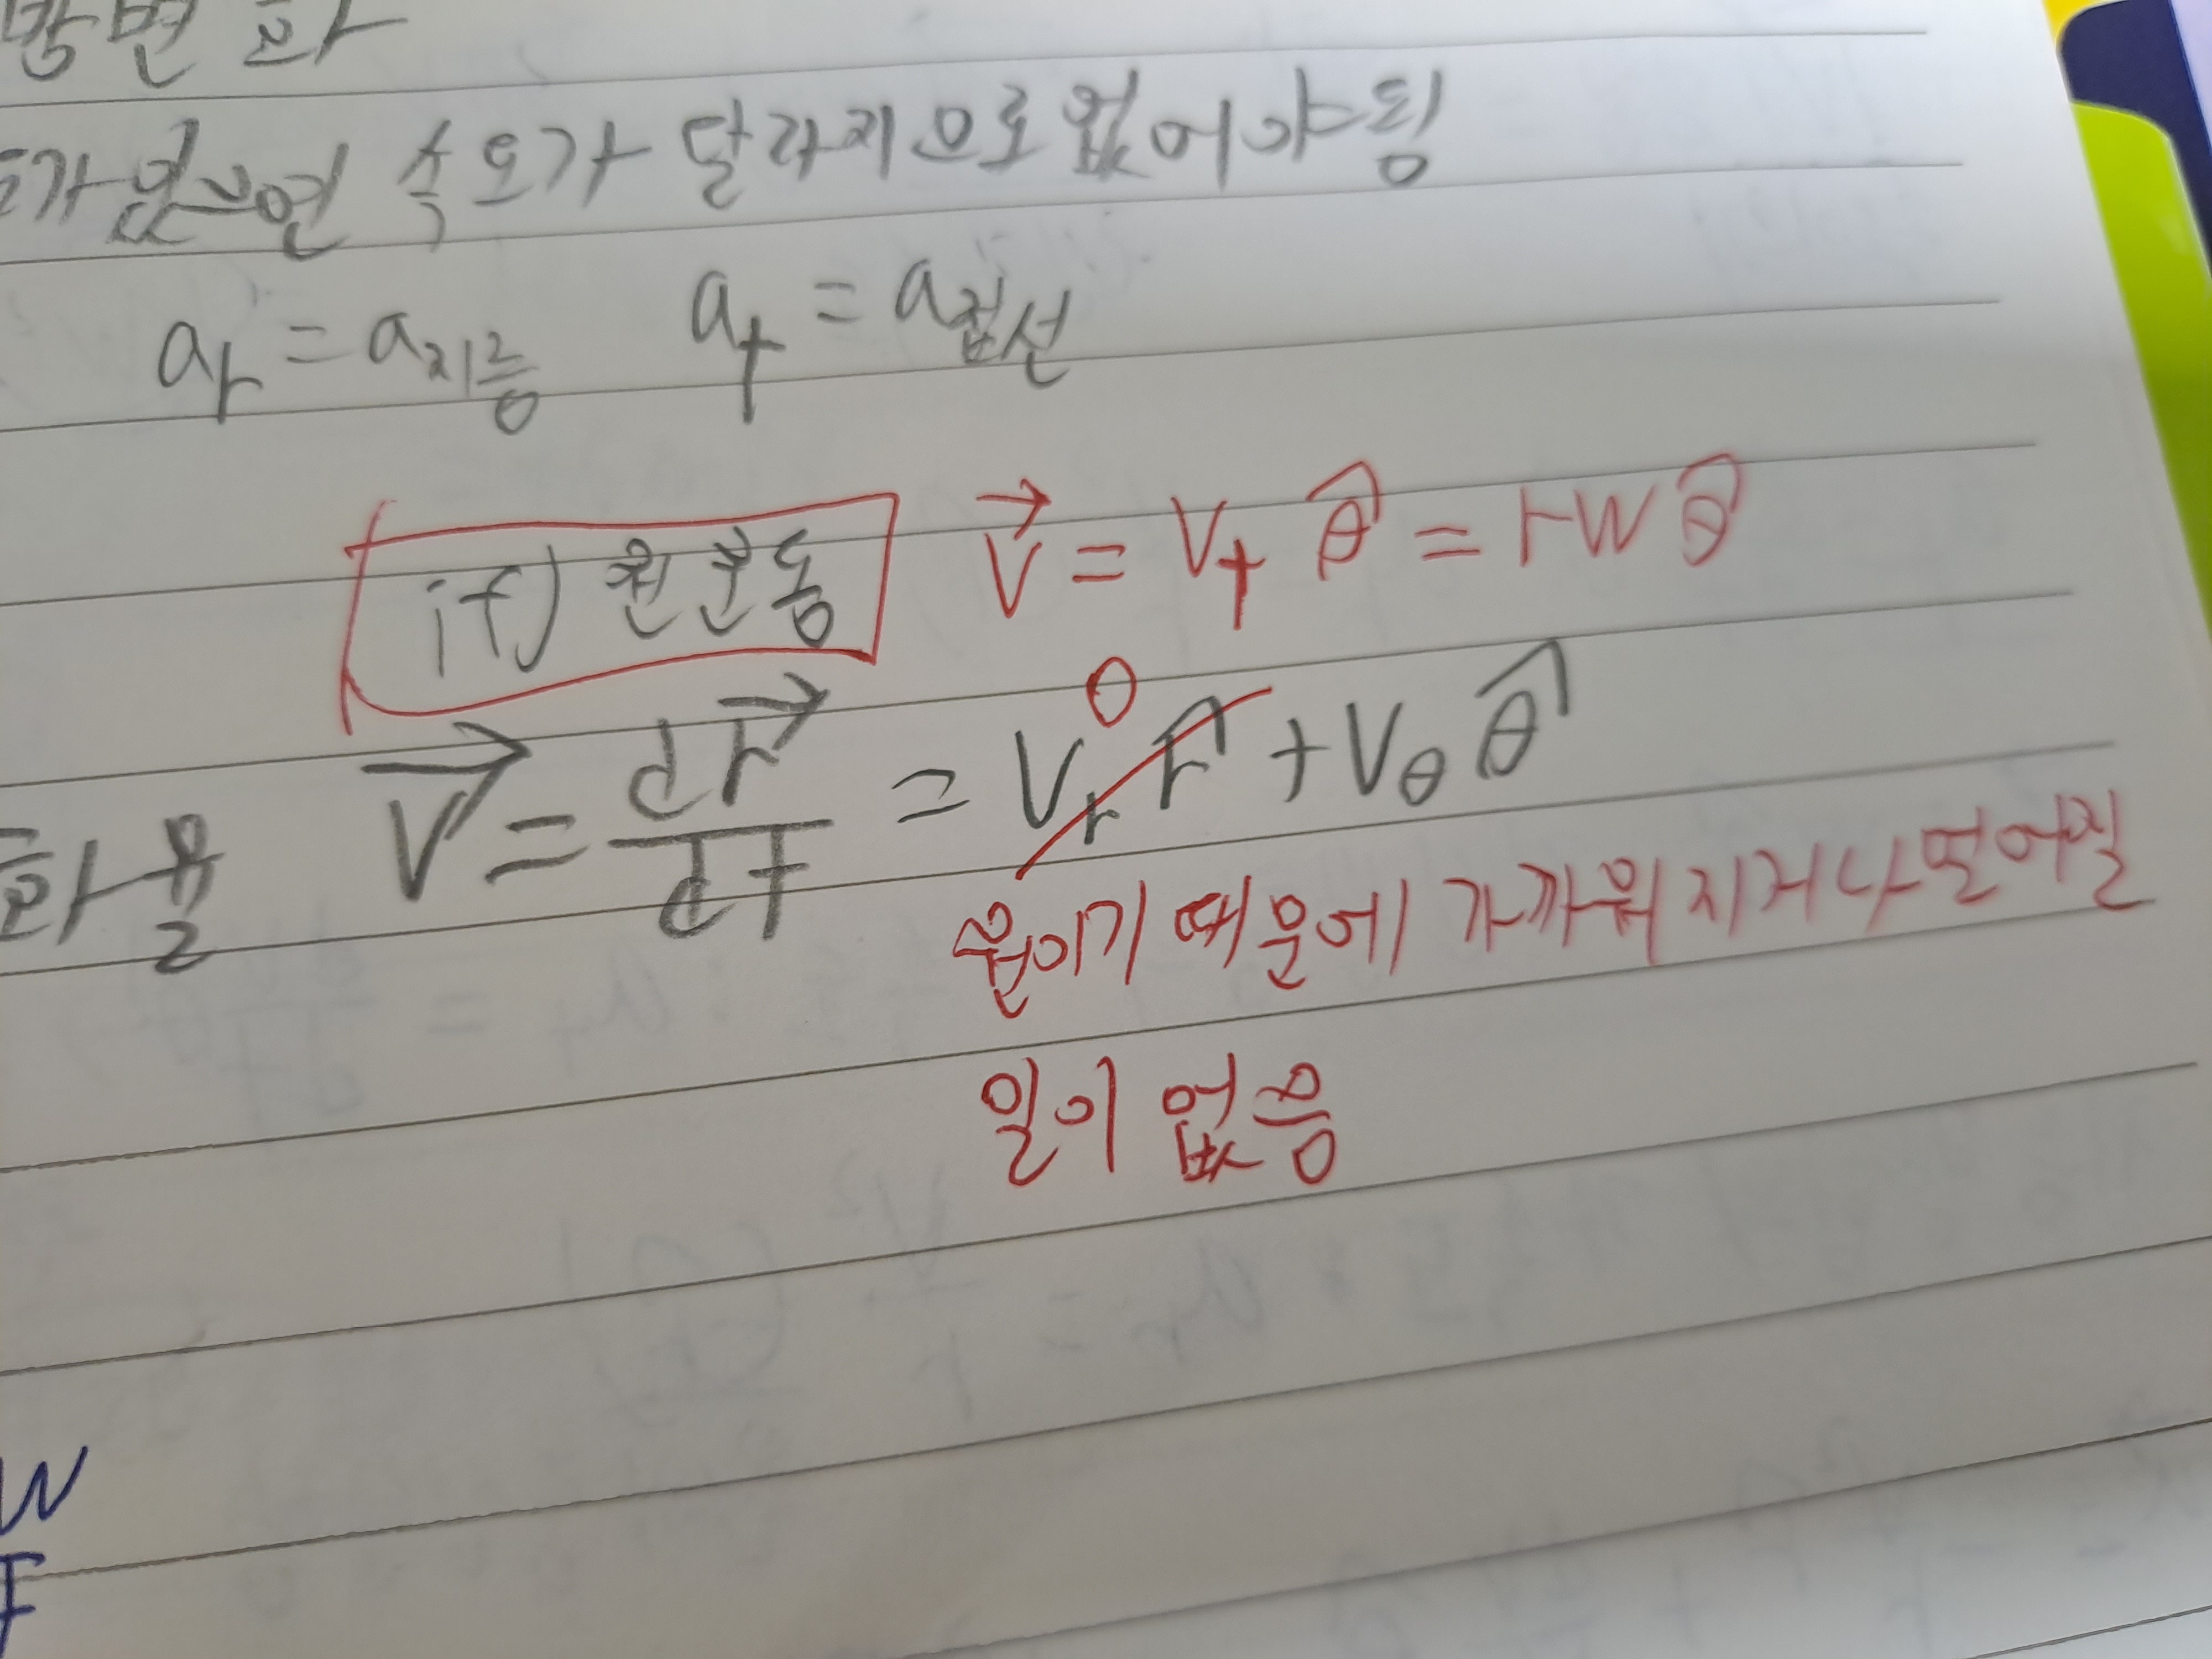 방변화
가 있으면 속도가 달라지므로 없어야 됨
aᵣ = a지름 aₜ = a접선
if) 원운동 v⃗ = vₜ θ̂ = rw θ̂
화율 v⃗ = dr⃗/dt = vᵣ r̂ 0 + v_θ θ̂
원이기 때문에 가까워지거나 멀어질
일이 없음
W
F